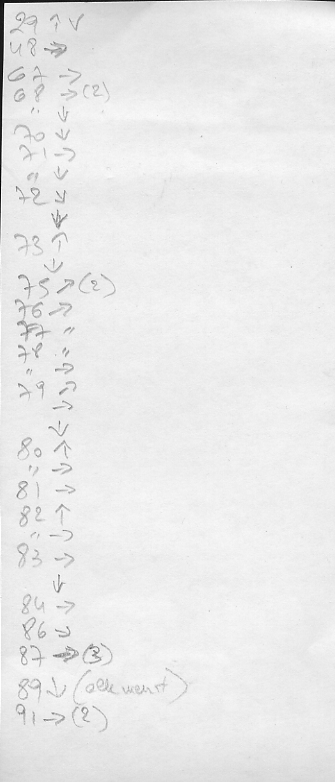 29 ↑ ↓
48 →
67 →
68 → (2)
" ↓
70 ↓
71 →
" ↓
72 ↓
↓
73 ↑
↓
75 → (2)
76 →
77 "
78 "
" →
79 →
→
↓
80 ↑
" →
81 →
82 ↑
" →
83 →
↓
84 →
86 →
87 → (3)
89 ↓
91 → (2)